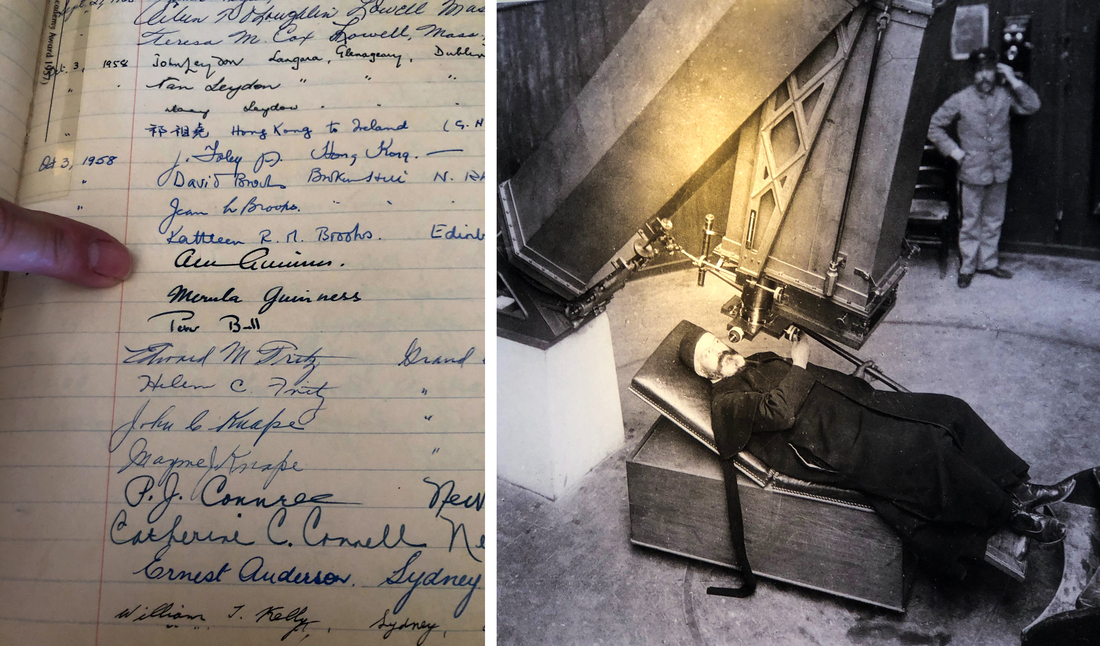 Academy Award 195
Teresa M. Cox Lowell, Mass.
Oct. 3, 1958 John Leydon Langara, Glenageary, Dublin
" " Nan Leydon " " "
Leydon " "
" 祁祖堯 Hong Kong to Ireland (S.
Oct 3, 1958 J. Foley Hong Kong. —
" David Brooks Broken Hill N. Rh
" Jean L Brooks. " " "
Kathleen R. M. Brooks. Edinb
Guinness.
Merula Guinness
Bull
Edward M Fritz Grand
Helen C Fritz "
John C Knape "
Mayme J Knape "
P. J. Connree New
Catherine C. Connell Ne
Ernest Anderson. Sydney
William T. Kelly, Sydney,